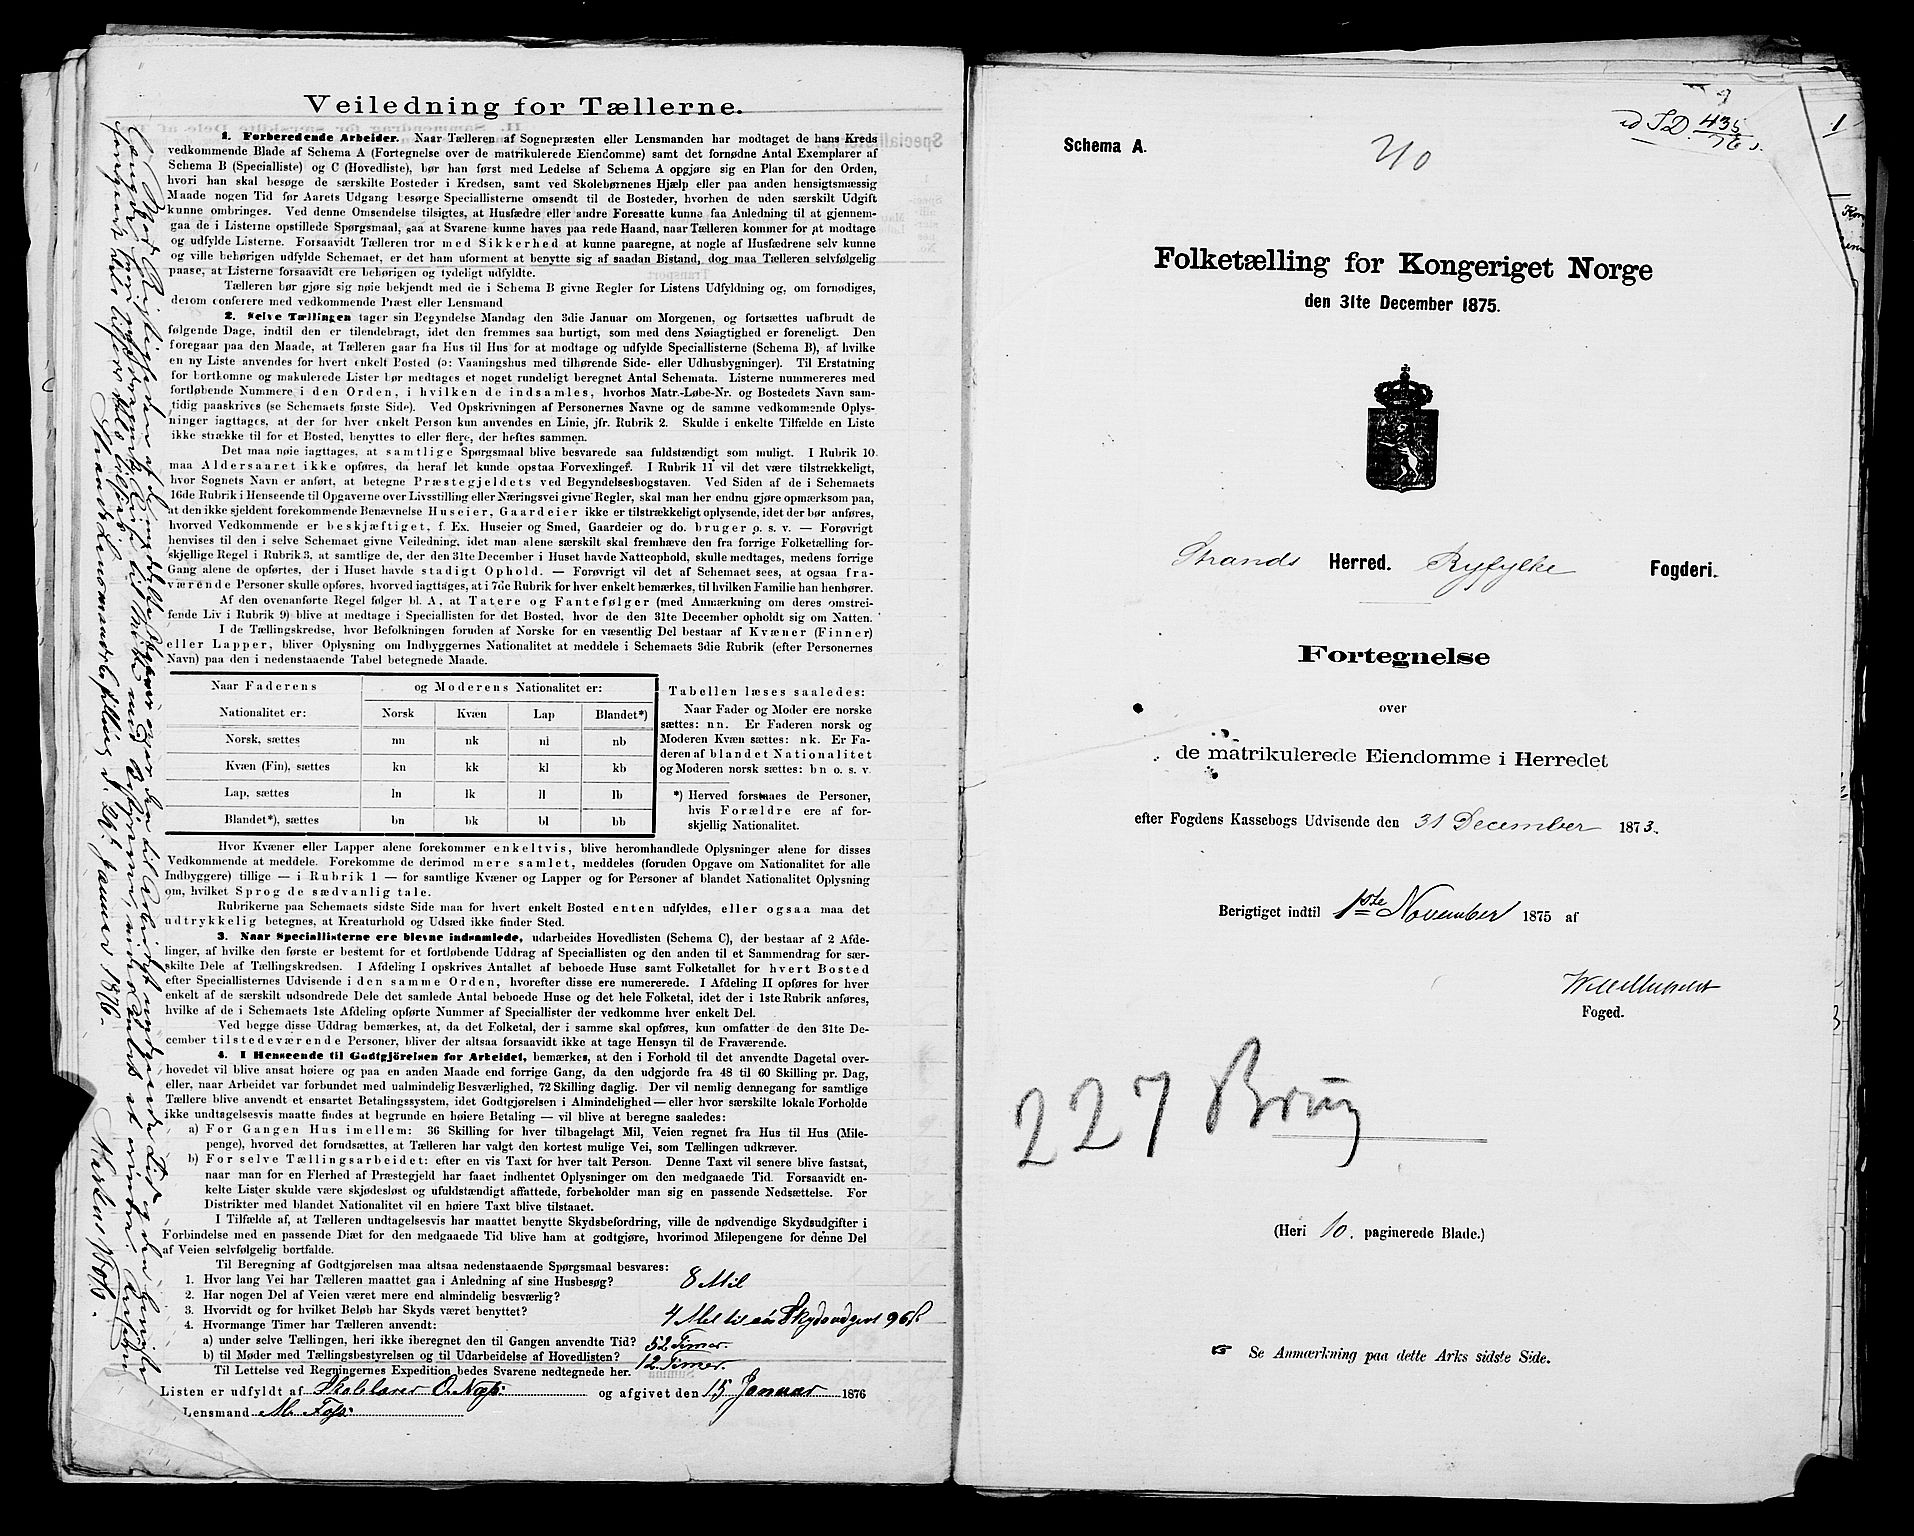 Veiledning for Tællerne.
1. Forberedende Arbeider. Naar Tælleren af Sognepræsten eller Lensmanden har modtaget de hans Kreds
vedkommende Blade af Schema A (Fortegnelse over de matrikulerede Eiendomme) samt det fornødne Antal Exemplarer af
Schema B (Specialliste) og C (Hovedliste), bør han først med Ledelse af Schema A opgjøre sig en Plan for den Orden,
hvori han skal besøge de særskilte Bosteder i Kredsen, samt ved Skolebørnenes Hjælp eller paa anden hensigtsmæssig
Maade nogen Tid før Aarets Udgang besørge Speciallisterne omsendt til de Bosteder, hvorhen de uden særskilt Udgift
kunne ombringes. Ved denne Omsendelse tilsigtes, at Husfædre eller andre Foresatte kunne faa Anledning til at gjennem-
gaa de i Listerne opstillede Spørgsmaal, saa at Svarene kunne haves paa rede Haand, naar Tælleren kommer for at modtage
og udfylde Listerne. Forsaavidt Tælleren tror med Sikkerhed at kunne paaregne, at nogle af Husfædrene selv kunne
og ville behørigen udfylde Schemaet, er det ham uforment at benytte sig af saadan Bistand, dog maa Tælleren selvfølgelig
paase, at Listerne forsaavidt ere behørigen og tydeligt udfyldte.
Tælleren bør gjøre sig nøie bekjendt med de i Schema B givne Regler for Listens Udfyldning og, om fornødiges,
derom conferere med vedkommende Præst eller Lensmand
2. Selve Tællingen tager sin Begyndelse Mandag den 3die Januar om Morgenen, og fortsættes uafbrudt de
følgende Dage, indtil den er tilendebragt, idet den fremmes saa hurtigt, som med dens Nøiagtighed er foreneligt. Den
foregaar paa den Maade, at Tælleren gaar fra Hus til Hus for at modtage og udfylde Speciallisterne (Schema B), af hvilke
en ny Liste anvendes for hvert enkelt Bosted (ɔ: Vaaningshus med tilhørende Side- eller Udhusbygninger). Til Erstatning
for bortkomne og makulerede Lister bør medtages et noget rundeligt beregnet Antal Schemata. Listerne nummereres med
fortløbende Nummere i den Orden, i hvilken de indsamles, hvorhos Matr.-Løbe-Nr. og Bostedets Navn sam-
tidig paaskrives (se Schemaets første Side). Ved Opskrivningen af Personernes Navne og de samme vedkommende Oplys-
ninger iagttages, at der for hver enkelt Person kun anvendes en Linie, jfr. Rubrik 2. Skulde i enkelte Tilfælde en Liste
ikke strække til for et Bosted, benyttes to eller flere, der heftes sammen.
Det maa nøie iagttages, at samtlige Spørgsmaal blive besvarede saa fuldstændigt som muligt. I Rubrik 10
maa Aldersaaret ikke opføres, da heraf let kunde opstaa Forvexlinger. I Rubrik 11 vil det være tilstrækkeligt,
hvor Sognets Navn er anført, at betegne Præstegjeldets ved Begyndelsesbogstaven. Ved Siden af de i Schemaets
16de Rubrik i Henseende til Opgaverne over Livsstilling eller Næringsvei givne Regler, skal man her endnu gjøre opmærksom paa,
at den ikke sjeldent forekommende Benævnelse Huseier, Gaardeier ikke er tilstrækkeligt oplysende, idet der bør anføres,
hvorved Vedkommende er beskjæftiget, f. Ex. Huseier og Smed, Gaardeier og do. bruger o. s. v. — Forøvrigt
henvises til den i selve Schemaet givne Veiledning, idet man alene særskilt skal fremhæve den fra forrige Folketælling for-
skjellige Regel i Rubrik 3, at samtlige de, der den 31te December i Huset havde Natteophold, skulle medtages, medens forrige
Gang alene de opførtes, der i Huset havde stadigt Ophold. — Forøvrigt vil det af Schemaet sees, at ogsaa fra-
værende Personer skulle opføres, hvorved iagttages, at i 7de Rubrik for hver enkelt bemærkes, til hvilken Familie han henhører.
Af den ovenanførte Regel følger bl. A, at Tatere og Fantefølger (med Anmærkning om deres omstrei-
fende Liv i Rubrik 9) blive at medtage i Speciallisten for det Bosted, hvor de den 31te December opholdt sig om Natten.
I de Tællingskredse, hvor Befolkningen foruden af Norske for en væsentlig Del bestaar af Kvæner (Finner)
eller Lapper, bliver Oplysning om Indbyggernes Nationalitet at meddele i Schemaets 3die Rubrik (efter Personernes
Navn) paa den i nedenstaaende Tabel betegnede Maade.
Naar Faderens og Moderens Nationalitet er:
Nationalitet er: Norsk Kvæn Lap Blandet*)
Norsk, sættes nn nk nl nb
Kvæn (Fin), sættes kn kk kl kb
Lap, sættes ln lk ll lb
Blandet*), sættes bn bk bl bb
Tabellen læses saaledes:
Naar Fader og Moder ere norske
sættes: nn. Er Faderen norsk og
Moderen Kvæn sættes: nk. Er Fa-
deren af blandet Nationalitet
og Moderen norsk sættes: bn o. s. v.
*) Herved forstaaes de Personer,
hvis Forældre ere af for-
skjellig Nationalitet.
Hvor Kvæner eller Lapper alene forekommer enkeltvis, blive heromhandlede Oplysninger alene for disses
Vedkommende at meddele. Forekomme de derimod mere samlet, meddeles (foruden Opgave om Nationalitet for alle
Indbyggere) tillige — i Rubrik 1 — for samtlige Kvæner og Lapper og for Personer af blandet Nationalitet Oplysning
om, hvilket Sprog de sædvanlig tale.
Rubrikerne paa Schemaets sidste Side maa for hvert enkelt Bosted enten udfyldes, eller ogsaa maa det
udtrykkelig betegnes, at Kreaturhold og Udsæd ikke finder Sted.
3. Naar Speciallisterne ere blevne indsamlede, udarbeides Hovedlisten (Schema C), der bestaar af 2 Afde-
linger, af hvilke den første er bestemt for et fortløbende Uddrag af Speciallisten og den anden til et Sammendrag for sær-
skilte Dele af Tællingskredsen. I Afdeling I opskrives Antallet af beboede Huse samt Folketallet for hvert Bosted
efter Speciallisternes Udvisende i den samme Orden, hvorefter disse ere numererede. I Afdeling II opføres for hver
enkelt af de særskilt udsondrede Dele det samlede Antal beboede Huse og det hele Folketal, idet der i 1ste Rubrik anføres,
hvilke af de i Schemaets 1ste Afdeling opførte Nummer af Speciallister der vedkomme hver enkelt Del.
Ved begge disse Uddrag bemærkes, at, da det Folketal, der i samme skal opføres, kun omfatter de den 31te De-
cember tilstedeværende Personer, bliver der altsaa forsaavidt ikke at tage Hensyn til de Fraværende.
4. I Henseende til Godtgjörelsen for Arbeidet, bemærkes, at den i Forhold til det anvendte Dagetal over-
hovedet vil blive ansat høiere og paa en anden Maade end forrige Gang, da den udgjorde fra 48 til 60 Skilling pr. Dag,
eller, naar Arbeidet var forbundet med ualmindelig Besværlighed, 72 Skilling daglig. Der vil nemlig dennegang for samtlige
Tællere blive anvendt et ensartet Betalingssystem, idet Godtgjørelsen i Almindelighed — eller hvor særskilte lokale Forholde
ikke undtagelsesvis maatte findes at begrunde en høiere Betaling — vil blive at beregne saaledes:
a) For Gangen Hus imellem: 36 Skilling for hver tilbagelagt Mil, Veien regnet fra Hus til Hus (Mile-
penge), hvorved det forudsættes, at Tælleren har valgt den kortest mulige Vei, som Tællingen udkræver.
b) For selve Tællingsarbeidet: efter en vis Taxt for hver talt Person. Denne Taxt vil senere blive fastsat,
naar man for en Flerhed af Præstegjeld har faaet indhentet Oplysninger om den medgaaede Tid. Forsaavidt en-
kelte Lister skulde være skjødesløst og ufuldstændigt affattede, forbeholder man sig en passende Nedsættelse. For
Distrikter med blandet Nationalitet vil en høiere Taxt blive tilstaaet.
I Tilfælde af, at Tælleren undtagelsesvis har maattet benytte Skydsbefordring, ville de nødvendige Skydsudgifter i
Forbindelse med en passende Diæt for den medgaaede Tid blive ham at godtgjøre, hvorimod Milepengene for denne Del
af Veien selvfølgelig bortfalde.
Til Beregning af Godtgjørelsen maa altsaa nedenstaaende Spørgsmaal besvares:
1. Hvor lang Vei har Tælleren maattet gaa i Anledning af sine Husbesøg? 8 Mil
2. Har nogen Del af Veien været mere end almindelig besværlig?
3. Hvorvidt og for hvilket Beløb har Skyds været benyttet? 4 Mil til
4. Hvormange Timer har Tælleren anvendt:
a) under selve Tællingen, heri ikke iberegnet den til Gangen anvendte Tid? 52 Timer.
b) til Møder med Tællingsbestyrelsen og til Udarbeidelse af Hovedlisten? 12 Timer.
Til Lettelse ved Regningernes Expedition bedes Svarene nedtegnede her.
Listen er udfyldt af Skolelærer O. Næs. og afgivet den 15 Januar 1876
Lensmand M. Foss.
Schema A.
40
435
76
Folketælling for Kongeriget Norge
den 31te December 1875.
Strands Herred. Ryfylke Fogderi.
Fortegnelse
over
de matrikulerede Eiendomme i Herredet
efter Fogdens Kassebogs Udvisende den 31 December 1873.
Berigtiget indtil 1ste November 1875 af
Foged.
227 Brug
(Heri 10. paginerede Blade.)
☞ Se Anmærkning paa dette Arks sidste Side.
1